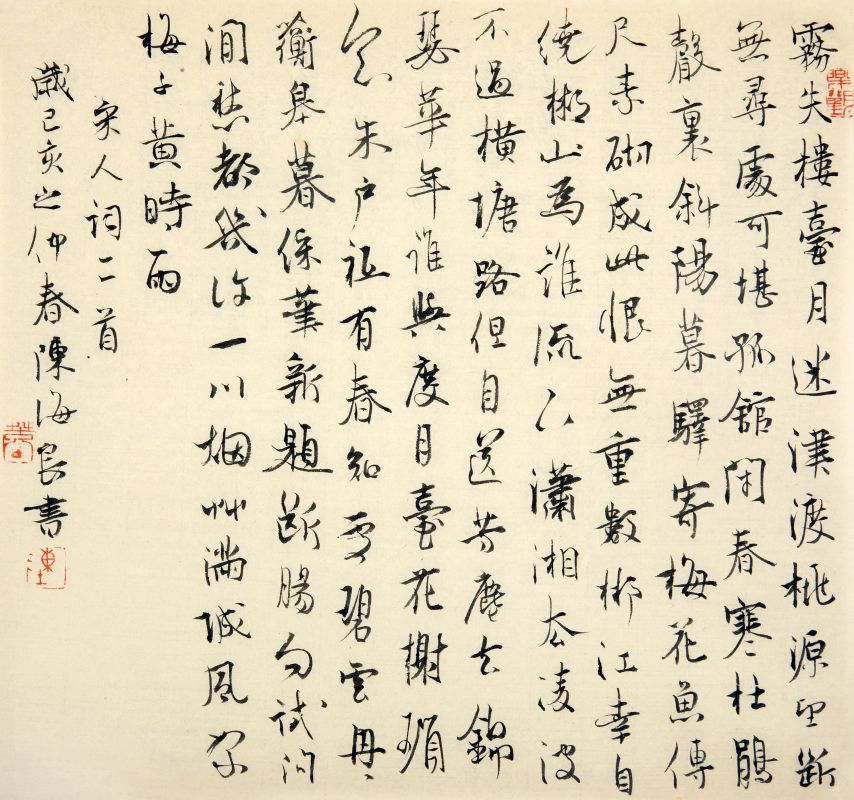 霧失樓臺月迷津渡桃源望斷
無尋處可堪孤館閉春寒杜鵑
聲裏斜陽暮驛寄梅花魚傳
尺素砌成此恨無重數郴江幸自
繞郴山爲誰流下瀟湘去凌波
不過橫塘路但目送芳塵去錦
瑟華年誰與度月臺花榭瑣
窗朱戶祇有春知處碧雲冉〻
蘅皋暮綵筆新題斷腸句試問
閒愁都幾許一川烟艸滿城風絮
梅子黃時雨
宋人詞二首
歲己亥之仲春陳海良書